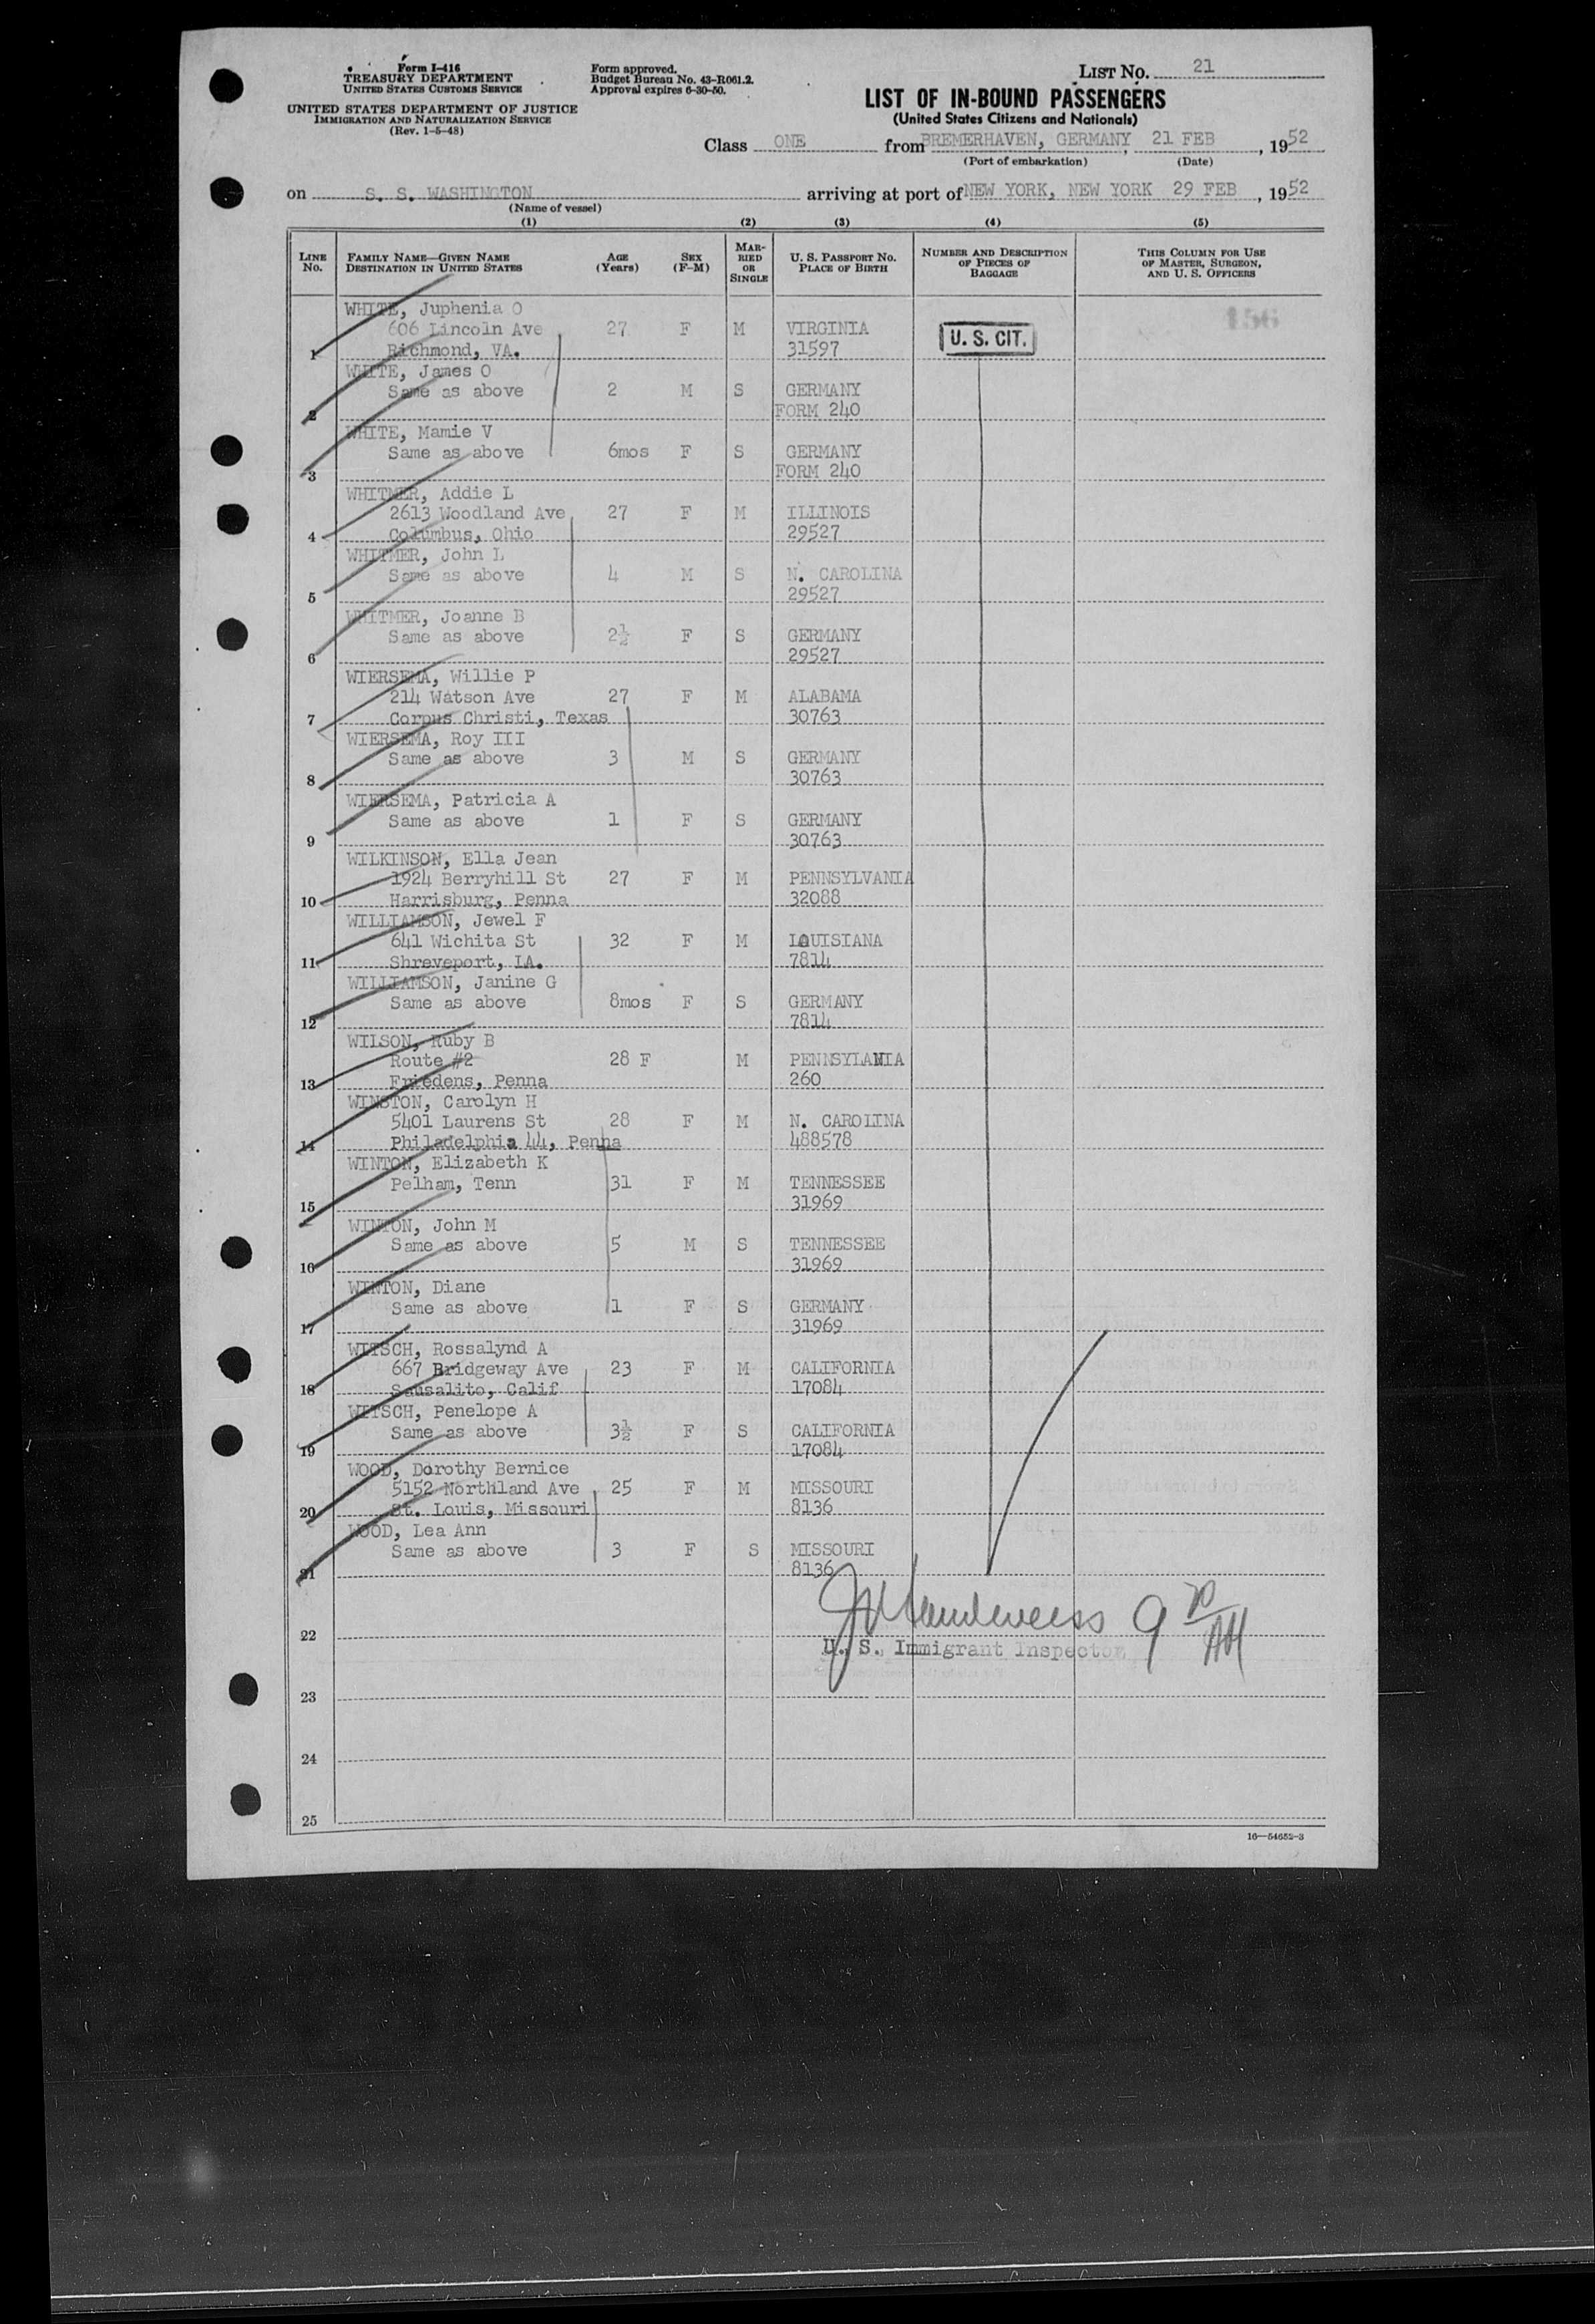 Form I-416
TREASURY DEPARTMENT
UNITED STATES CUSTOMS SERVICE
UNITED STATES DEPARTMENT OF JUSTICE
IMMIGRATION AND NATURALIZATION SERVICE
(Rev. 1-5-48)
Form approved.
Budget Bureau No. 43-R061.2.
Approval expires 6-30-50.
LIST No. 21
LIST OF IN-BOUND PASSENGERS
(United States Citizens and Nationals)
Class ONE from BREMERHAVEN, GERMANY, 21 FEB, 1952
(Port of embarkation) (Date)
on S. S. WASHINGTON arriving at port of NEW YORK, NEW YORK 29 FEB, 1952
(Name of vessel)
(1) (2) (3) (4) (5)
LINE No. FAMILY NAME—GIVEN NAME DESTINATION IN UNITED STATES AGE (Years) SEX (F-M) MARRIED OR SINGLE U. S. PASSPORT No. PLACE OF BIRTH NUMBER AND DESCRIPTION OF PIECES OF BAGGAGE THIS COLUMN FOR USE OF MASTER, SURGEON, AND U. S. OFFICERS
WHITE, Juphenia O
606 Lincoln Ave 27 F M VIRGINIA U. S. CIT. 156
1 Richmond, VA. 31597
WHITE, James O
Same as above 2 M S GERMANY
2 FORM 240
WHITE, Mamie V
Same as above 6mos F S GERMANY
3 FORM 240
WHITMER, Addie L
2613 Woodland Ave 27 F M ILLINOIS
4 Columbus, Ohio 29527
WHITMER, John L
Same as above 4 M S N. CAROLINA
5 29527
WHITMER, Joanne B
Same as above 2½ F S GERMANY
6 29527
WIERSEMA, Willie P
214 Watson Ave 27 F M ALABAMA
7 Corpus Christi, Texas 30763
WIERSEMA, Roy III
Same as above 3 M S GERMANY
8 30763
WIERSEMA, Patricia A
Same as above 1 F S GERMANY
9 30763
WILKINSON, Ella Jean
1924 Berryhill St 27 F M PENNSYLVANIA
10 Harrisburg, Penna 32088
WILLIAMSON, Jewel F
641 Wichita St 32 F M LOUISIANA
11 Shreveport, LA. 7814
WILLIAMSON, Janine G
Same as above 8mos F S GERMANY
12 7814
WILSON, Ruby B
Route #2 28 F M PENNSYLANIA
13 Friedens, Penna 260
WINSTON, Carolyn H
5401 Laurens St 28 F M N. CAROLINA
14 Philadelphia 44, Penna 488578
WINTON, Elizabeth K
Pelham, Tenn 31 F M TENNESSEE
15 31969
WINTON, John M
Same as above 5 M S TENNESSEE
16 31969
WINTON, Diane
Same as above 1 F S GERMANY
17 31969
WITSCH, Rossalynd A
667 Bridgeway Ave 23 F M CALIFORNIA
18 Sausalito, Calif 17084
WITSCH, Penelope A
Same as above 3½ F S CALIFORNIA
19 17084
WOOD, Dorothy Bernice
5152 Northland Ave 25 F M MISSOURI
20 St. Louis, Missouri 8136
WOOD, Lea Ann
Same as above 3 F S MISSOURI
21 8136
22 U. S. Immigrant Inspector 9 AM
23
24
25
16—54652-3